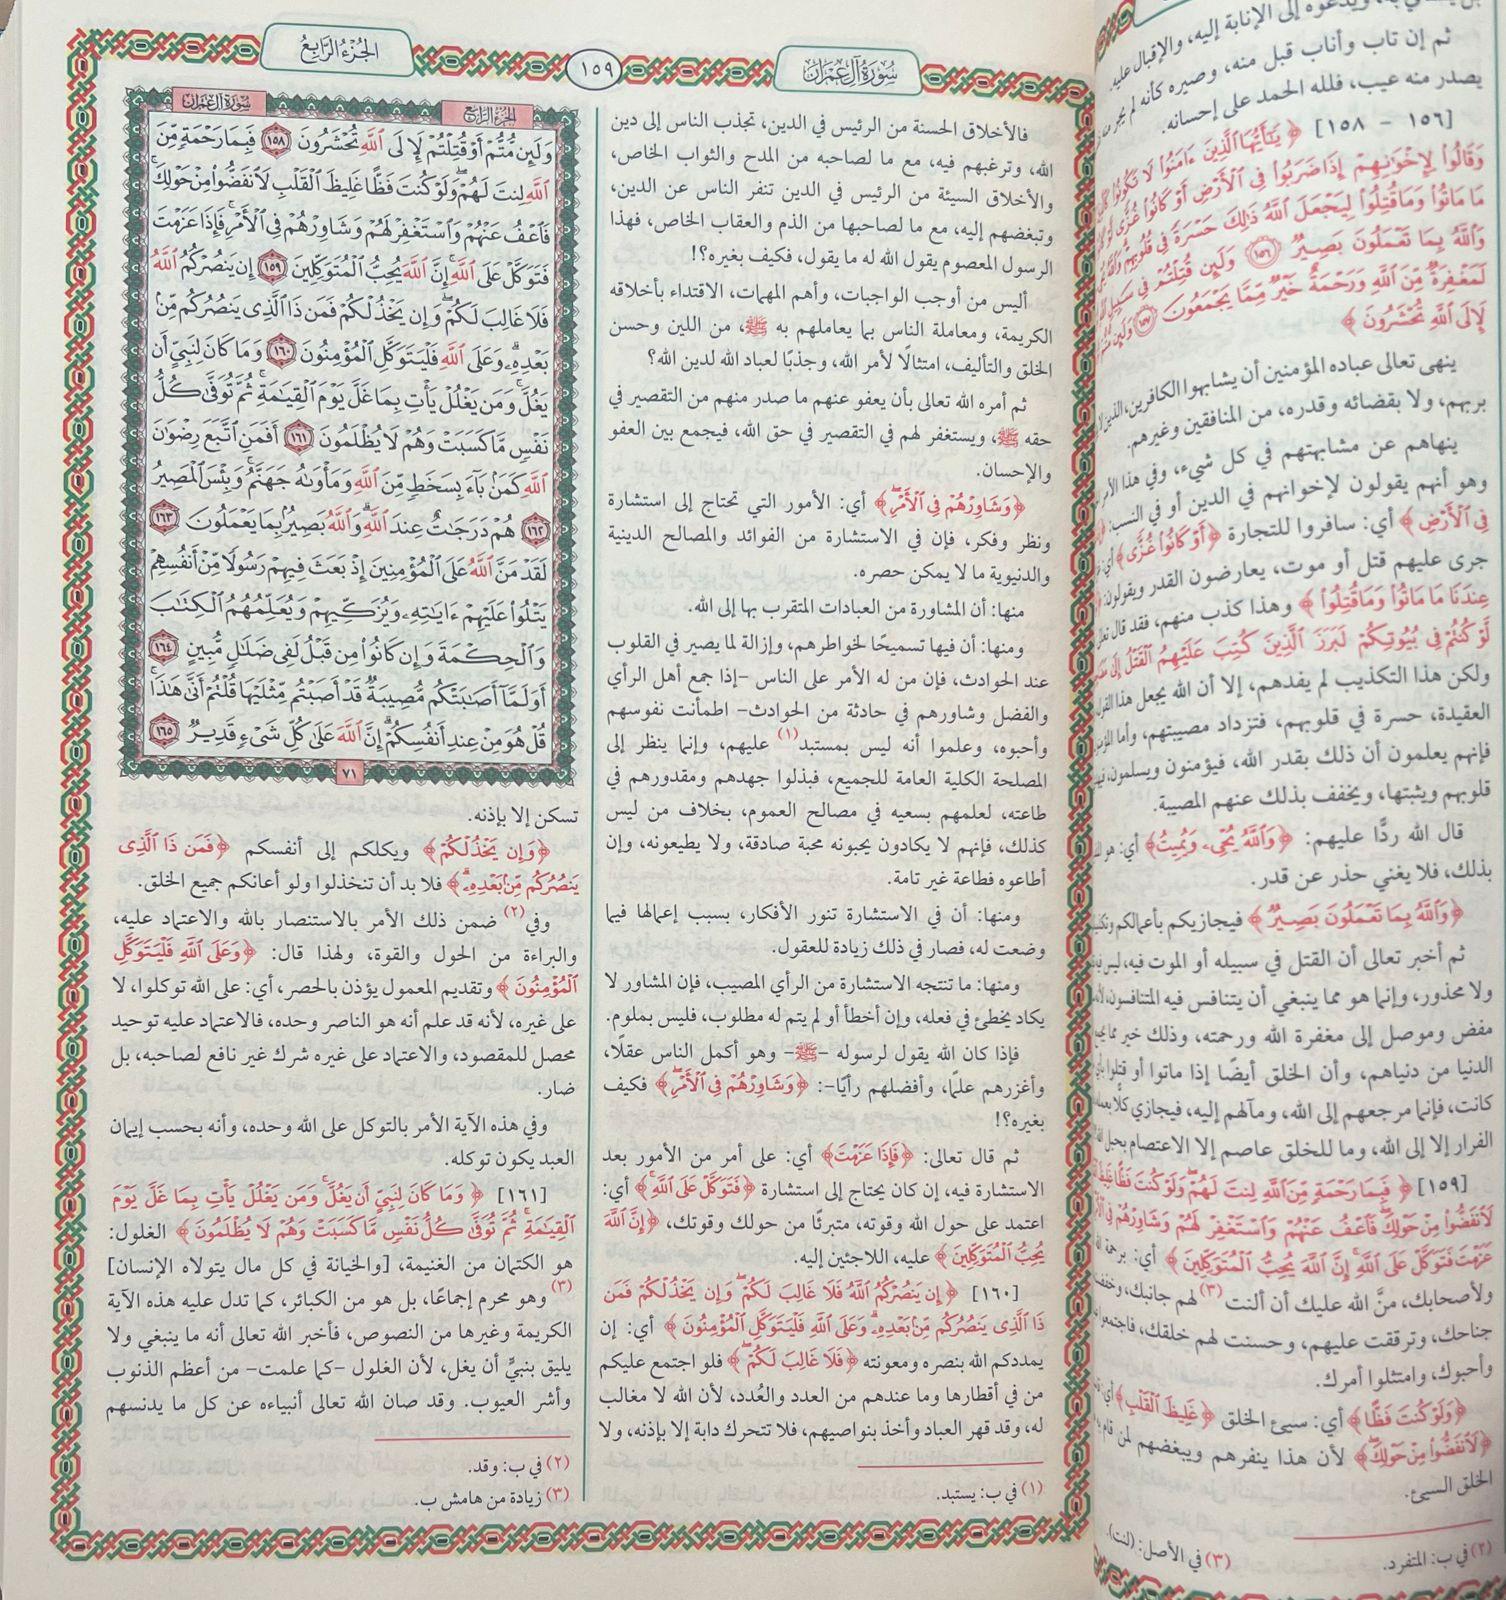 بربهم، ولا بقضائه وقدره، من المنافقين وغيرهم.
ثم إن تاب وأناب قبل منه، وصيره كأنه لم
يصدر منه عيب، فلله الحمد على إحسانه.
[١٥٦ - ١٥٨] ﴿ يَٰٓأَيُّهَا ٱلَّذِينَ ءَامَنُوا۟ لَا تَكُونُوا۟
وَقَالُوا۟ لِإِخْوَٰنِهِمْ إِذَا ضَرَبُوا۟ فِى ٱلْأَرْضِ أَوْ كَانُوا۟ غُزًّى
مَا مَاتُوا۟ وَمَا قُتِلُوا۟ لِيَجْعَلَ ٱللَّهُ ذَٰلِكَ حَسْرَةً فِى قُلُوبِهِمْ
وَٱللَّهُ بِمَا تَعْمَلُونَ بَصِيرٌ ١٥٦ وَلَئِن قُتِلْتُمْ فِى
لَمَغْفِرَةٌ مِّنَ ٱللَّهِ وَرَحْمَةٌ خَيْرٌ مِّمَّا يَجْمَعُونَ ١٥٧
لَإِلَى ٱللَّهِ تُحْشَرُونَ ﴾
ينهى تعالى عباده المؤمنين أن يشابهوا الكافرين، الذين لا
بربهم، ولا بقضائه وقدره، من المنافقين وغيرهم.
ينهاهم عن مشابهتهم في كل شيء، وفي هذا
وهو أنهم يقولون لإخوانهم في الدين أو في النسب:
فِى ٱلْأَرْضِ ﴾ أي: سافروا للتجارة ﴿ أَوْ كَانُوا۟ غُزًّى ﴾
جرى عليهم قتل أو موت، يعارضون القدر ويقولون:
عِندَنَا مَا مَاتُوا۟ وَمَا قُتِلُوا۟ ﴾ وهذا كذب منهم، فقد قال
لَّوْ كُنتُمْ فِى بُيُوتِكُمْ لَبَرَزَ ٱلَّذِينَ كُتِبَ عَلَيْهِمُ ٱلْقَتْلُ إِلَىٰ
ولكن هذا التكذيب لم يفدهم، إلا أن الله يجعل هذا القول
العقيدة، حسرة في قلوبهم، فتزداد مصيبتهم، وأما
فإنهم يعلمون أن ذلك بقدر الله، فيؤمنون ويسلمون،
قلوبهم ويثبتها، ويخفف بذلك عنهم المصيبة.
قال الله ردًّا عليهم: ﴿ وَٱللَّهُ يُحْىِۦ وَيُمِيتُ ﴾ أي: هو
بذلك، فلا يغني حذر عن قدر.
﴿ وَٱللَّهُ بِمَا تَعْمَلُونَ بَصِيرٌ ﴾ فيجازيكم بأعمالكم
ثم أخبر تعالى أن القتل في سبيله أو الموت فيه، ليس
ولا محذور، وإنما هو مما ينبغي أن يتنافس فيه المتنافسون،
مفض وموصل إلى مغفرة الله ورحمته، وذلك خير مما
الدنيا من دنياهم، وأن الخلق أيضًا إذا ماتوا أو قتلوا
كانت، فإنما مرجعهم إلى الله، ومآلهم إليه، فيجازي كلًّا
الفرار إلا إلى الله، وما للخلق عاصم إلا الاعتصام بحبل
[١٥٩] ﴿ فَبِمَا رَحْمَةٍ مِّنَ ٱللَّهِ لِنتَ لَهُمْ وَلَوْ كُنتَ فَظًّا
لَٱنفَضُّوا۟ مِنْ حَوْلِكَ فَٱعْفُ عَنْهُمْ وَٱسْتَغْفِرْ لَهُمْ وَشَاوِرْهُمْ فِى
عَزَمْتَ فَتَوَكَّلْ عَلَى ٱللَّهِ إِنَّ ٱللَّهَ يُحِبُّ ٱلْمُتَوَكِّلِينَ ﴾ أي: برحمة
ولأصحابك، منَّ الله عليك أن ألنت (٣) لهم جانبك،
جناحك، وترققت عليهم، وحسنت لهم خلقك،
وأحبوك، وامتثلوا أمرك.
﴿ وَلَوْ كُنتَ فَظًّا ﴾ أي: سيئ الخلق ﴿ غَلِيظَ ٱلْقَلْبِ ﴾
﴿ لَٱنفَضُّوا۟ مِنْ حَوْلِكَ ﴾ لأن هذا ينفرهم ويبغضهم لمن قام
الخلق السيئ.
(٢) في ب: المتفرد. (٣) في الأصل: (لنت).
سُورَةُ آلِ عِمْرَان
١٥٩
الجُزْءُ الرَّابِعُ
فالأخلاق الحسنة من الرئيس في الدين، تجذب الناس إلى دين
الله، وترغبهم فيه، مع ما لصاحبه من المدح والثواب الخاص،
والأخلاق السيئة من الرئيس في الدين تنفر الناس عن الدين،
وتبغضهم إليه، مع ما لصاحبها من الذم والعقاب الخاص، فهذا
الرسول المعصوم يقول الله له ما يقول، فكيف بغيره؟!
أليس من أوجب الواجبات، وأهم المهمات، الاقتداء بأخلاقه
الكريمة، ومعاملة الناس بما يعاملهم به ﷺ، من اللين وحسن
الخلق والتأليف، امتثالًا لأمر الله، وجذبًا لعباد الله لدين الله؟
ثم أمره الله تعالى بأن يعفو عنهم ما صدر منهم من التقصير في
حقه ﷺ، ويستغفر لهم في التقصير في حق الله، فيجمع بين العفو
والإحسان.
﴿ وَشَاوِرْهُمْ فِى ٱلْأَمْرِ ﴾ أي: الأمور التي تحتاج إلى استشارة
ونظر وفكر، فإن في الاستشارة من الفوائد والمصالح الدينية
والدنيوية ما لا يمكن حصره.
منها: أن المشاورة من العبادات المتقرب بها إلى الله.
ومنها: أن فيها تسميحًا لخواطرهم، وإزالة لما يصير في القلوب
عند الحوادث، فإن من له الأمر على الناس -إذا جمع أهل الرأي
والفضل وشاورهم في حادثة من الحوادث- اطمأنت نفوسهم
وأحبوه، وعلموا أنه ليس بمستبد (١) عليهم، وإنما ينظر إلى
المصلحة الكلية العامة للجميع، فبذلوا جهدهم ومقدورهم في
طاعته، لعلمهم بسعيه في مصالح العموم، بخلاف من ليس
كذلك، فإنهم لا يكادون يحبونه محبة صادقة، ولا يطيعونه، وإن
أطاعوه فطاعة غير تامة.
ومنها: أن في الاستشارة تنور الأفكار، بسبب إعمالها فيما
وضعت له، فصار في ذلك زيادة للعقول.
ومنها: ما تنتجه الاستشارة من الرأي المصيب، فإن المشاور لا
يكاد يخطئ في فعله، وإن أخطأ أو لم يتم له مطلوب، فليس بملوم.
فإذا كان الله يقول لرسوله -ﷺ- وهو أكمل الناس عقلًا،
وأغزرهم علمًا، وأفضلهم رأيًا-: ﴿ وَشَاوِرْهُمْ فِى ٱلْأَمْرِ ﴾ فكيف
بغيره؟!
ثم قال تعالى: ﴿ فَإِذَا عَزَمْتَ ﴾ أي: على أمر من الأمور بعد
الاستشارة فيه، إن كان يحتاج إلى استشارة ﴿ فَتَوَكَّلْ عَلَى ٱللَّهِ ﴾ أي:
اعتمد على حول الله وقوته، متبرئًا من حولك وقوتك، ﴿ إِنَّ ٱللَّهَ
يُحِبُّ ٱلْمُتَوَكِّلِينَ ﴾ عليه، اللاجئين إليه.
[١٦٠] ﴿ إِن يَنصُرْكُمُ ٱللَّهُ فَلَا غَالِبَ لَكُمْ وَإِن يَخْذُلْكُمْ فَمَن
ذَا ٱلَّذِى يَنصُرُكُم مِّنۢ بَعْدِهِۦ وَعَلَى ٱللَّهِ فَلْيَتَوَكَّلِ ٱلْمُؤْمِنُونَ ﴾ أي: إن
يمددكم الله بنصره ومعونته ﴿ فَلَا غَالِبَ لَكُمْ ﴾ فلو اجتمع عليكم
من في أقطارها وما عندهم من العدد والعُدد، لأن الله لا مغالب
له، وقد قهر العباد وأخذ بنواصيهم، فلا تتحرك دابة إلا بإذنه، ولا
(١) في ب: يستبد.
سُورَةُ آلِ عِمْرَان
الجُزْءُ الرَّابِعُ
وَلَئِن مُّتُّمْ أَوْ قُتِلْتُمْ لَإِلَى ٱللَّهِ تُحْشَرُونَ ١٥٨ فَبِمَا رَحْمَةٍ مِّنَ
ٱللَّهِ لِنتَ لَهُمْ وَلَوْ كُنتَ فَظًّا غَلِيظَ ٱلْقَلْبِ لَٱنفَضُّوا۟ مِنْ حَوْلِكَ
فَٱعْفُ عَنْهُمْ وَٱسْتَغْفِرْ لَهُمْ وَشَاوِرْهُمْ فِى ٱلْأَمْرِ فَإِذَا عَزَمْتَ
فَتَوَكَّلْ عَلَى ٱللَّهِ إِنَّ ٱللَّهَ يُحِبُّ ٱلْمُتَوَكِّلِينَ ١٥٩ إِن يَنصُرْكُمُ ٱللَّهُ
فَلَا غَالِبَ لَكُمْ وَإِن يَخْذُلْكُمْ فَمَن ذَا ٱلَّذِى يَنصُرُكُم مِّنۢ
بَعْدِهِۦ وَعَلَى ٱللَّهِ فَلْيَتَوَكَّلِ ٱلْمُؤْمِنُونَ ١٦٠ وَمَا كَانَ لِنَبِىٍّ أَن
يَغُلَّ وَمَن يَغْلُلْ يَأْتِ بِمَا غَلَّ يَوْمَ ٱلْقِيَٰمَةِ ثُمَّ تُوَفَّىٰ كُلُّ
نَفْسٍ مَّا كَسَبَتْ وَهُمْ لَا يُظْلَمُونَ ١٦١ أَفَمَنِ ٱتَّبَعَ رِضْوَٰنَ
ٱللَّهِ كَمَنۢ بَآءَ بِسَخَطٍ مِّنَ ٱللَّهِ وَمَأْوَىٰهُ جَهَنَّمُ وَبِئْسَ ٱلْمَصِيرُ
١٦٢ هُمْ دَرَجَٰتٌ عِندَ ٱللَّهِ وَٱللَّهُ بَصِيرٌۢ بِمَا يَعْمَلُونَ ١٦٣
لَقَدْ مَنَّ ٱللَّهُ عَلَى ٱلْمُؤْمِنِينَ إِذْ بَعَثَ فِيهِمْ رَسُولًا مِّنْ أَنفُسِهِمْ
يَتْلُوا۟ عَلَيْهِمْ ءَايَٰتِهِۦ وَيُزَكِّيهِمْ وَيُعَلِّمُهُمُ ٱلْكِتَٰبَ
وَٱلْحِكْمَةَ وَإِن كَانُوا۟ مِن قَبْلُ لَفِى ضَلَٰلٍ مُّبِينٍ ١٦٤
أَوَلَمَّآ أَصَٰبَتْكُم مُّصِيبَةٌ قَدْ أَصَبْتُم مِّثْلَيْهَا قُلْتُمْ أَنَّىٰ هَٰذَا
قُلْ هُوَ مِنْ عِندِ أَنفُسِكُمْ إِنَّ ٱللَّهَ عَلَىٰ كُلِّ شَىْءٍ قَدِيرٌ ١٦٥
٧١
تسكن إلا بإذنه.
﴿ وَإِن يَخْذُلْكُمْ ﴾ ويكلكم إلى أنفسكم ﴿ فَمَن ذَا ٱلَّذِى
يَنصُرُكُم مِّنۢ بَعْدِهِۦ ﴾ فلا بد أن تنخذلوا ولو أعانكم جميع الخلق.
وفي (٢) ضمن ذلك الأمر بالاستنصار بالله والاعتماد عليه،
والبراءة من الحول والقوة، ولهذا قال: ﴿ وَعَلَى ٱللَّهِ فَلْيَتَوَكَّلِ
ٱلْمُؤْمِنُونَ ﴾ وتقديم المعمول يؤذن بالحصر، أي: على الله توكلوا، لا
على غيره، لأنه قد علم أنه هو الناصر وحده، فالاعتماد عليه توحيد
محصل للمقصود، والاعتماد على غيره شرك غير نافع لصاحبه، بل
ضار.
وفي هذه الآية الأمر بالتوكل على الله وحده، وأنه بحسب إيمان
العبد يكون توكله.
[١٦١] ﴿ وَمَا كَانَ لِنَبِىٍّ أَن يَغُلَّ وَمَن يَغْلُلْ يَأْتِ بِمَا غَلَّ يَوْمَ
ٱلْقِيَٰمَةِ ثُمَّ تُوَفَّىٰ كُلُّ نَفْسٍ مَّا كَسَبَتْ وَهُمْ لَا يُظْلَمُونَ ﴾ الغلول:
هو الكتمان من الغنيمة، [والخيانة في كل مال يتولاه الإنسان]
(٣) وهو محرم إجماعًا، بل هو من الكبائر، كما تدل عليه هذه الآية
الكريمة وغيرها من النصوص، فأخبر الله تعالى أنه ما ينبغي ولا
يليق بنبيٍّ أن يغل، لأن الغلول -كما علمت- من أعظم الذنوب
وأشر العيوب. وقد صان الله تعالى أنبياءه عن كل ما يدنسهم
(٢) في ب: وقد.
(٣) زيادة من هامش ب.